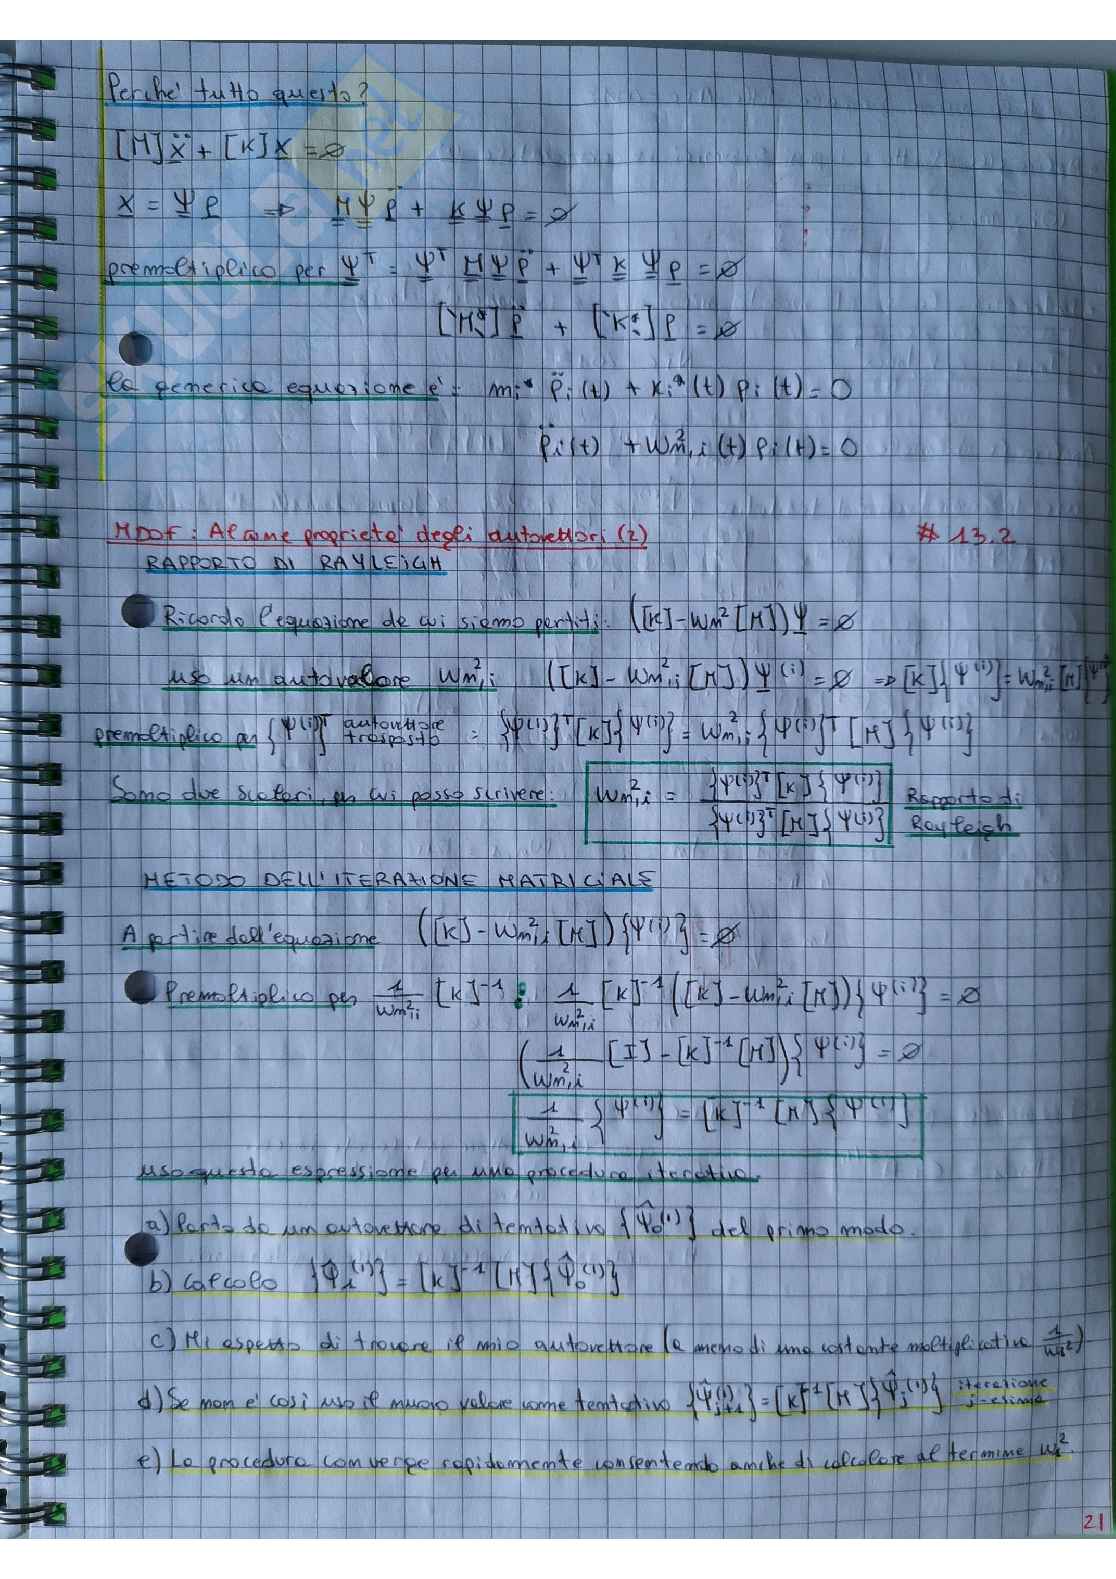 Perche' tutto questo?
[M]ẍ + [K]x = ∅
x = Ψ p ⇒ M Ψ p̈ + K Ψ p = ∅
premoltiplico per Ψᵀ = Ψᵀ M Ψ p̈ + Ψᵀ K Ψ p = ∅
[`M*.] p̈ + [`K*.] p = ∅
la generica equazione e' : mᵢ* p̈ᵢ(t) + Kᵢ*(t) pᵢ(t) = 0
p̈ᵢ(t) + ωₙ,ᵢ²(t) pᵢ(t) = 0
MDOF : Alcune proprieta' degli autovettori (2) # 13.2
RAPPORTO DI RAYLEIGH
Ricordo l'equazione da cui siamo partiti: ([K] - ωₙ²[M])Ψ = ∅
uso un autovalore ωₙ,ᵢ² ([K] - ωₙ,ᵢ²[M])Ψ⁽ⁱ⁾ = ∅ ⇒ [K]{Ψ⁽ⁱ⁾} = ωₙ,ᵢ²[M]{Ψ⁽ⁱ⁾}
premoltiplico per {Ψ⁽ⁱ⁾}ᵀ autovettore trasposto = {Ψ⁽ⁱ⁾}ᵀ[K]{Ψ⁽ⁱ⁾} = ωₙ,ᵢ²{Ψ⁽ⁱ⁾}ᵀ[M]{Ψ⁽ⁱ⁾}
Sono due scalari, per cui posso scrivere: ωₙ,ᵢ² = {Ψ⁽ⁱ⁾}ᵀ[K]{Ψ⁽ⁱ⁾} / {Ψ⁽ⁱ⁾}ᵀ[M]{Ψ⁽ⁱ⁾} Rapporto di Rayleigh
METODO DELL'ITERAZIONE MATRICIALE
A partire dall'equazione ([K] - ωₙ,ᵢ²[M]){Ψ⁽ⁱ⁾} = ∅
Premoltiplico per 1/ωₙ,ᵢ² [K]⁻¹ : 1/ωₙ,ᵢ² [K]⁻¹([K] - ωₙ,ᵢ²[M]){Ψ⁽ⁱ⁾} = ∅
(1/ωₙ,ᵢ² [I] - [K]⁻¹[M]){Ψ⁽ⁱ⁾} = ∅
1/ωₙ,ᵢ² {Ψ⁽ⁱ⁾} = [K]⁻¹[M]{Ψ⁽ⁱ⁾}
uso questa espressione per una procedura iterativa.
a) Parto da un autovettore di tentativo {Ψ̂₀⁽¹⁾} del primo modo.
b) Calcolo {Ψ̂₁⁽¹⁾} = [K]⁻¹[M]{Ψ̂₀⁽¹⁾}
c) Mi aspetto di trovare il mio autovettore (a meno di una costante moltiplicativa 1/ω₁²)
d) Se non e' cosi uso il nuovo valore come tentativo {Ψ̂ⱼ₊₁⁽¹⁾} = [K]⁻¹[M]{Ψ̂ⱼ⁽¹⁾} iterazione j-esima
e) La procedura converge rapidamente consentendo anche di calcolare al termine ω₁².
21